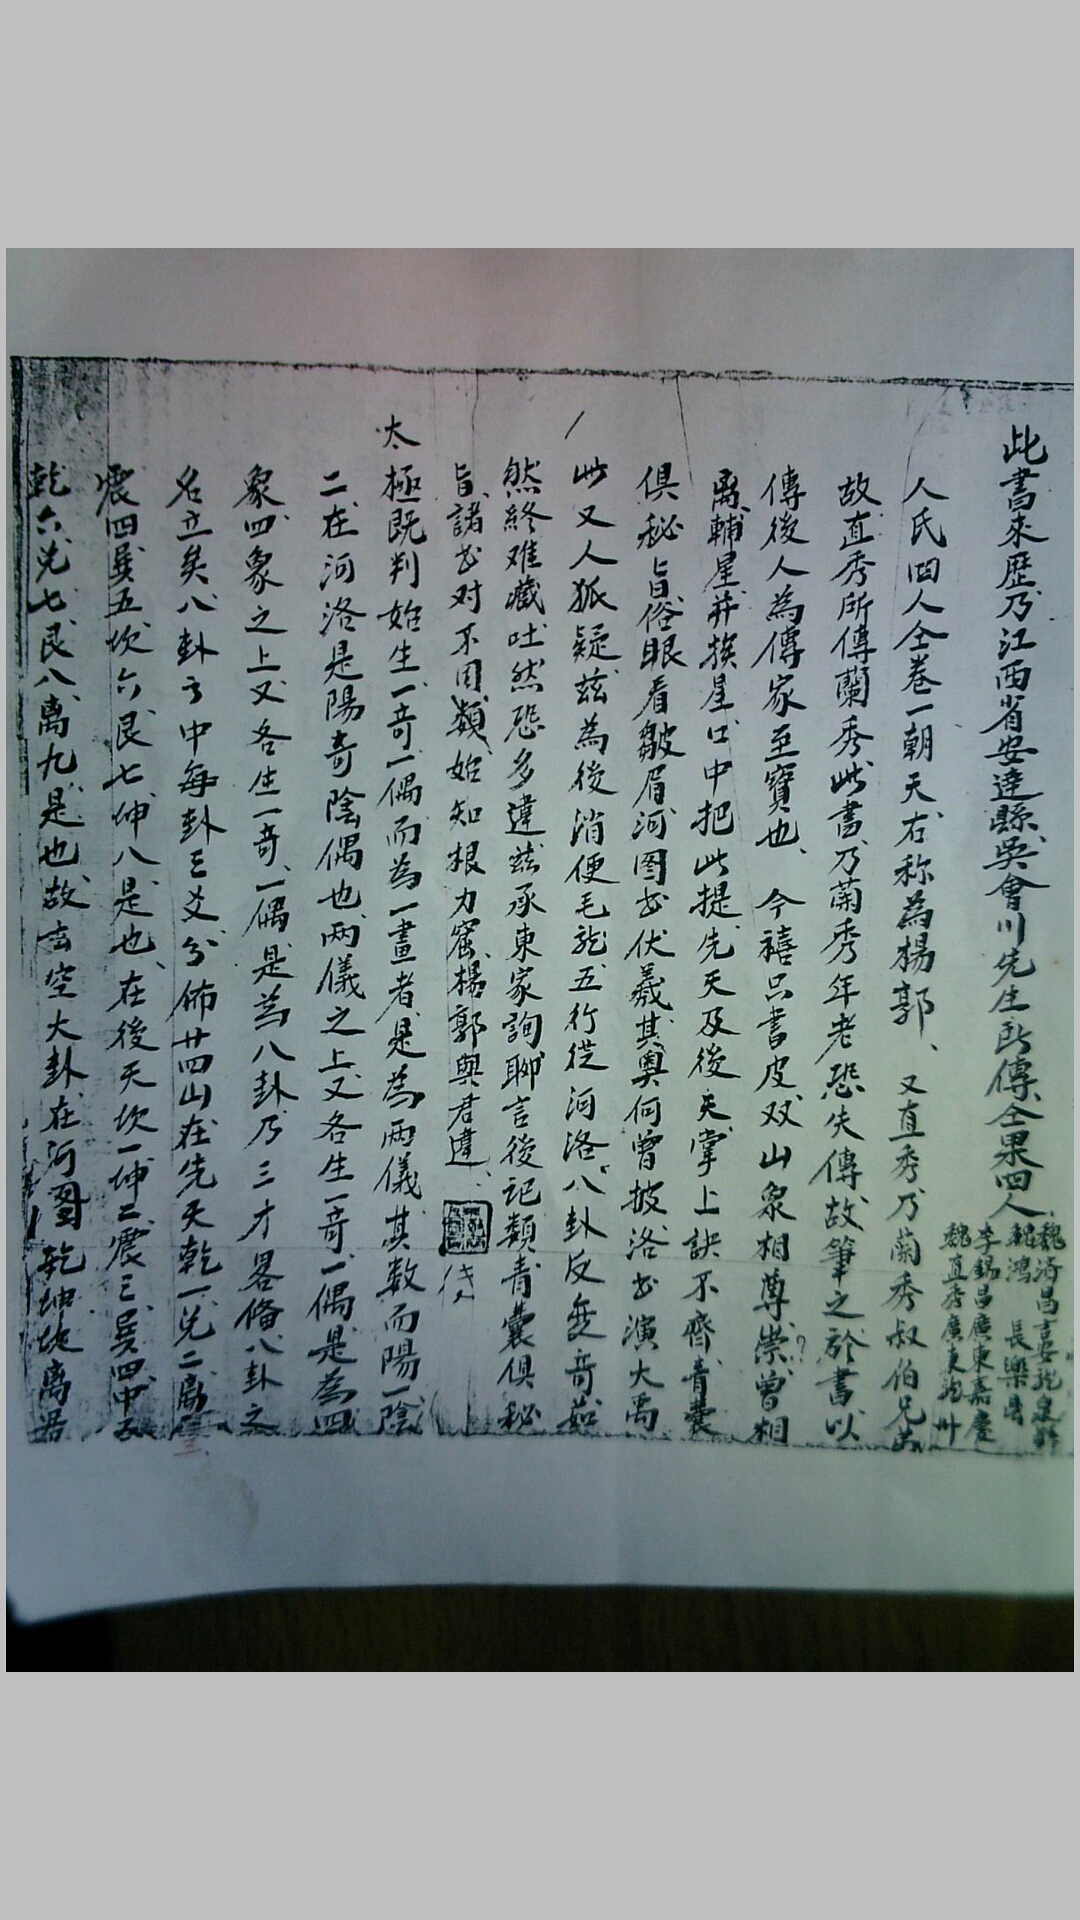 此書來歷乃江西省安達縣吳會川先生所傳仝果四人
魏濟昌
魏鴻 長樂
李錫昌廣東嘉慶
魏直秀廣東 州
人氏四人仝卷一朝天右称為楊郭、又直秀乃蘭秀叔伯兄
故直秀所傳蘭秀此書乃蘭秀年老恐失傳故筆之於書以
傳後人為傳家至寶也、今禧只書皮双山象相尊崇曾相
离輔星并挨星口中把此提先天及後天掌上訣不齊青囊
俱秘旨俗眼看皺眉河图书伏羲其奧何曾披洛书演大禹
此又人狐疑茲為後消便毛龙五行從河洛八卦反变奇茲
然終难藏吐然恐多違茲承東家詢聊言後記類青囊俱秘
旨諸书对不同類始知根力窩楊郭與君違、
太極既判始生一奇一偶而為一畫者是為兩儀其数而陽一陰
二在河洛是陽奇陰偶也两儀之上又各生一奇一偶是為四
象四象之上又各生一奇一偶是為八卦乃三才畧俻八卦之
名立矣八卦之中每卦三爻分佈廿四山在先天乾一兑二离三
震四巽五坎六艮七坤八是也、在後天坎一坤二震三巽四中五
乾六兑七艮八离九是也故玄空大卦在河图乾坤坎离居